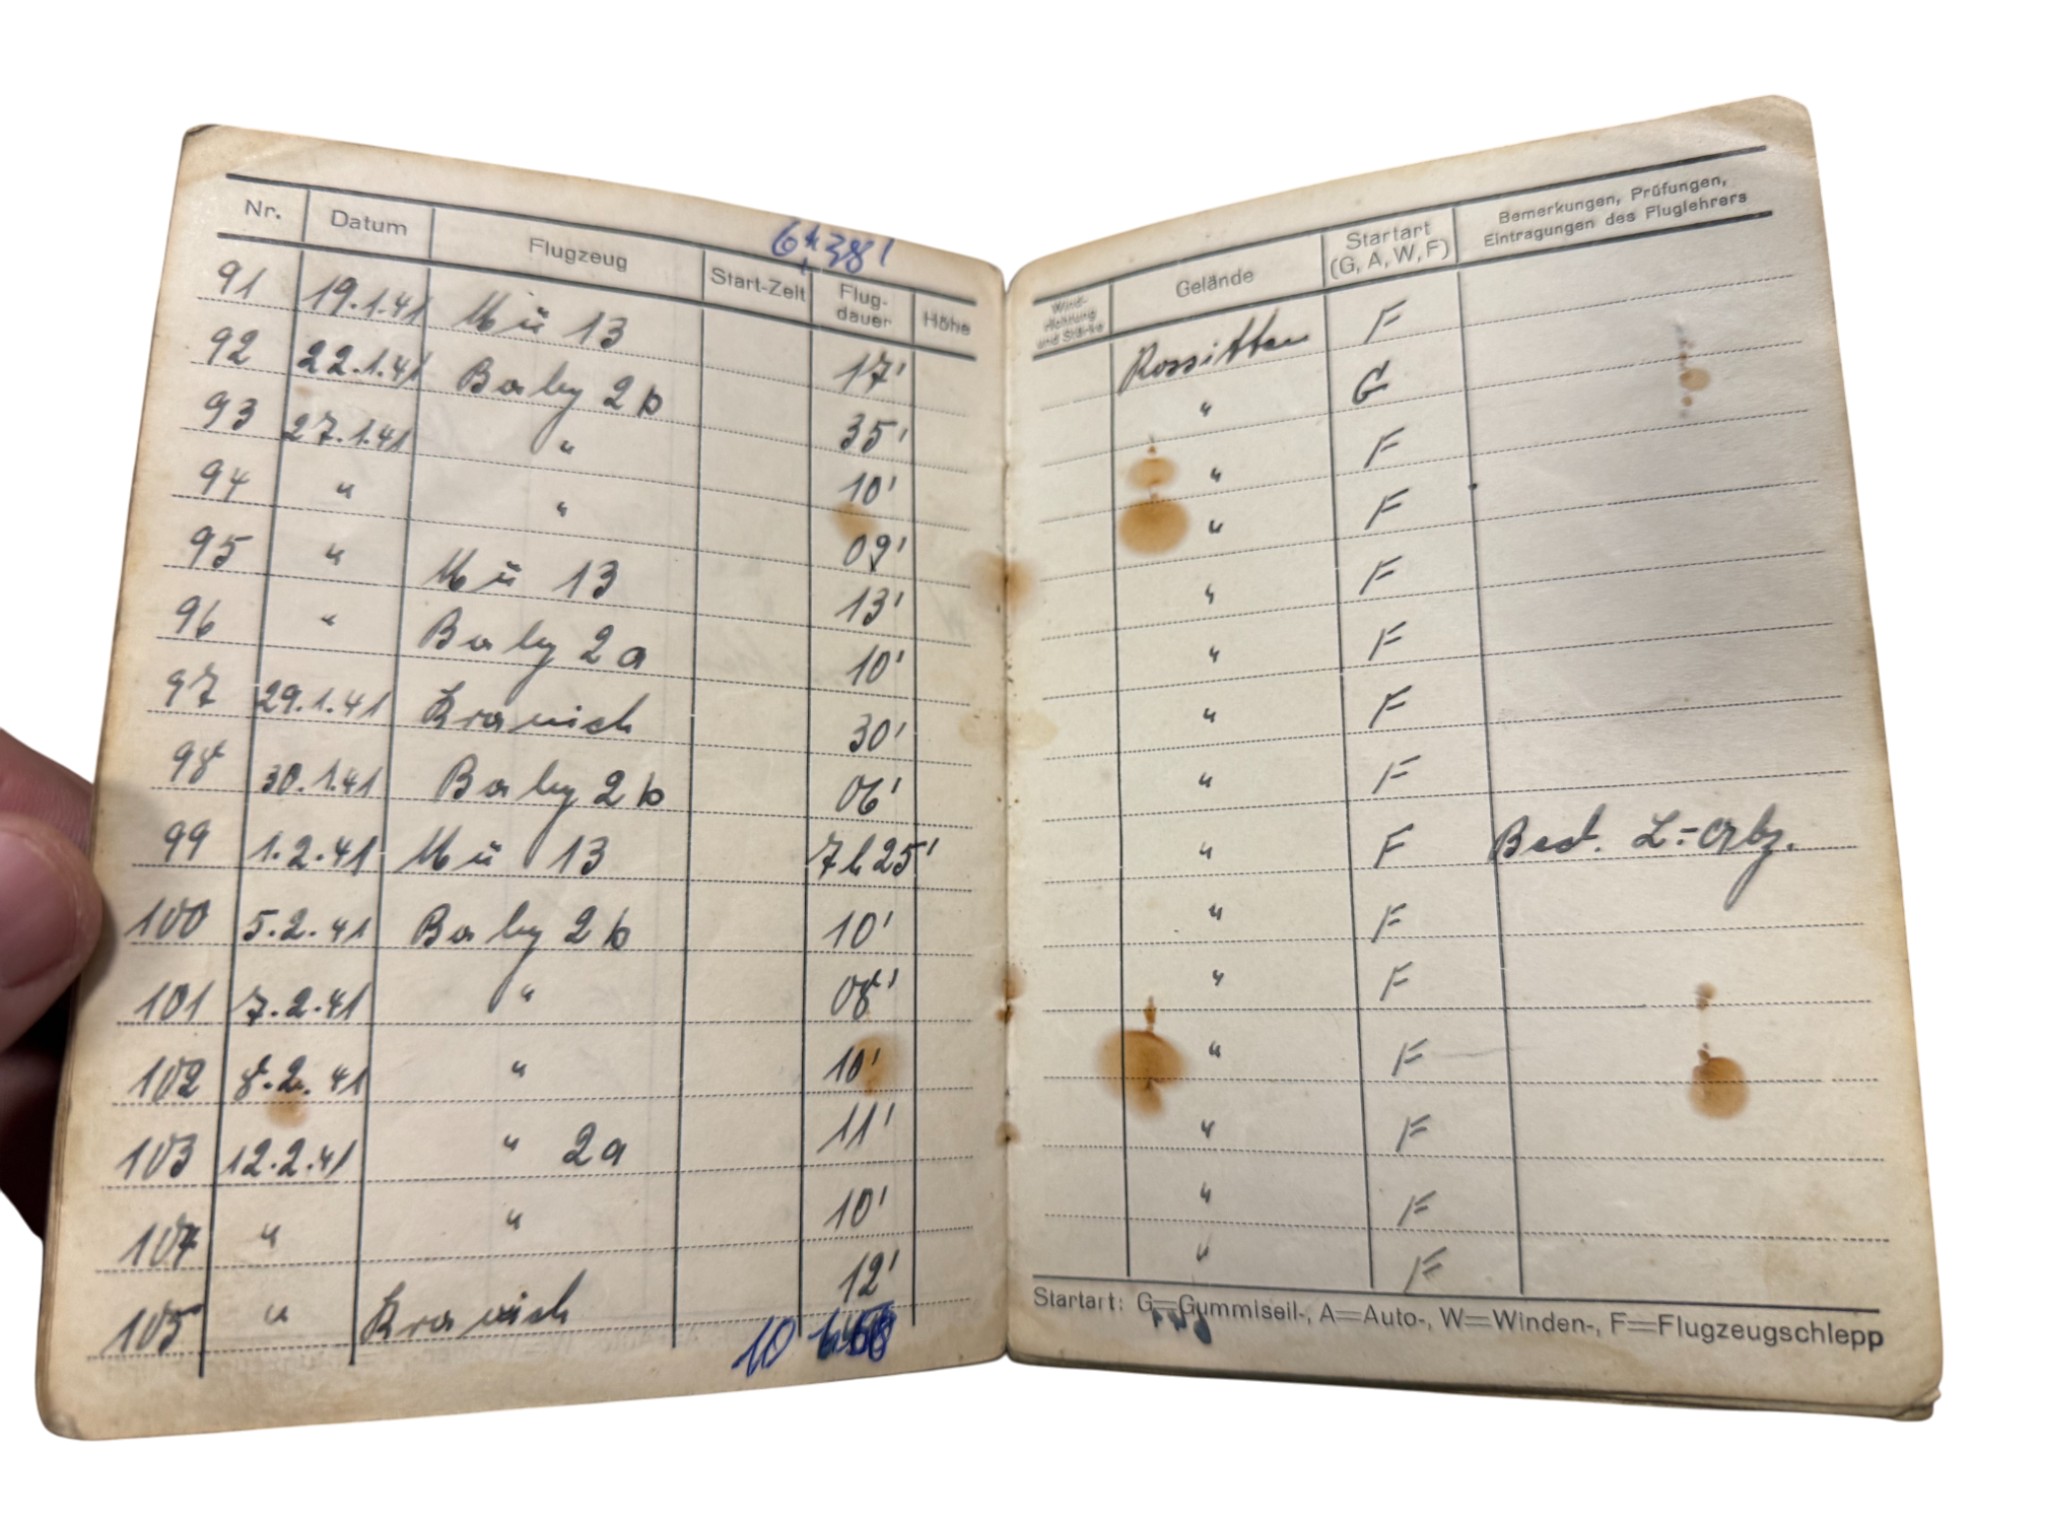 6h 38'
Nr. Datum Flugzeug Start-Zeit Flug-dauer Höhe Wind-richtung und Stärke Gelände Startart (G, A, W, F) Bemerkungen, Prüfungen, Eintragungen des Fluglehrers
91 19.1.41 Mü 13 17' Rossitten F
92 22.1.41 Baby 2b 35' " G
93 27.1.41 " 10' " F
94 " " 09' " F
95 " Mü 13 13' " F
96 " Baby 2a 10' " F
97 29.1.41 Kranich 30' " F
98 30.1.41 Baby 2b 06' " F
99 1.2.41 Mü 13 7h25' " F Bed. L.-Abz.
100 5.2.41 Baby 2b 10' " F
101 7.2.41 " 08' " F
102 8.2.41 " 10' " F
103 12.2.41 " 2a 11' " F
104 " " 10' " F
105 " Kranich 12' " F
10
Startart: G=Gummiseil-, A=Auto-, W=Winden-, F=Flugzeugschlepp